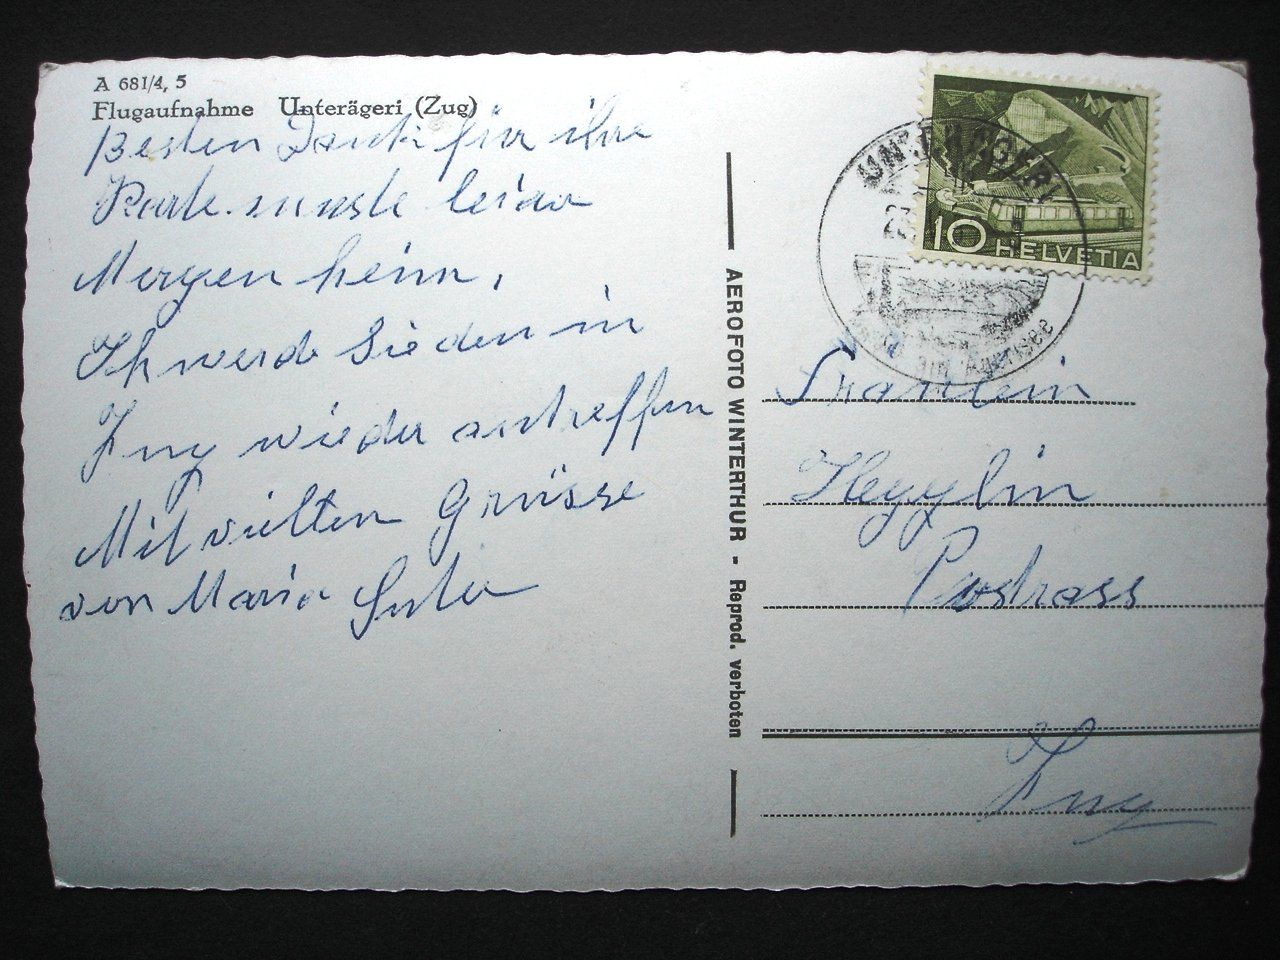 A 681/4, 5
Flugaufnahme Unterägeri (Zug)
Besten Dank für ihre
Karte. musste leider
Morgen heim,
Ich werde Sie den in
Zug wieder antreffen
Mit vielten Grüsse
von Maria Suter
AEROFOTO WINTERTHUR - Reprod. verboten
UNTERÄGERI
am Ägerisee
10 HELVETIA
Fräulein
Hegglin
Postrass
Zug